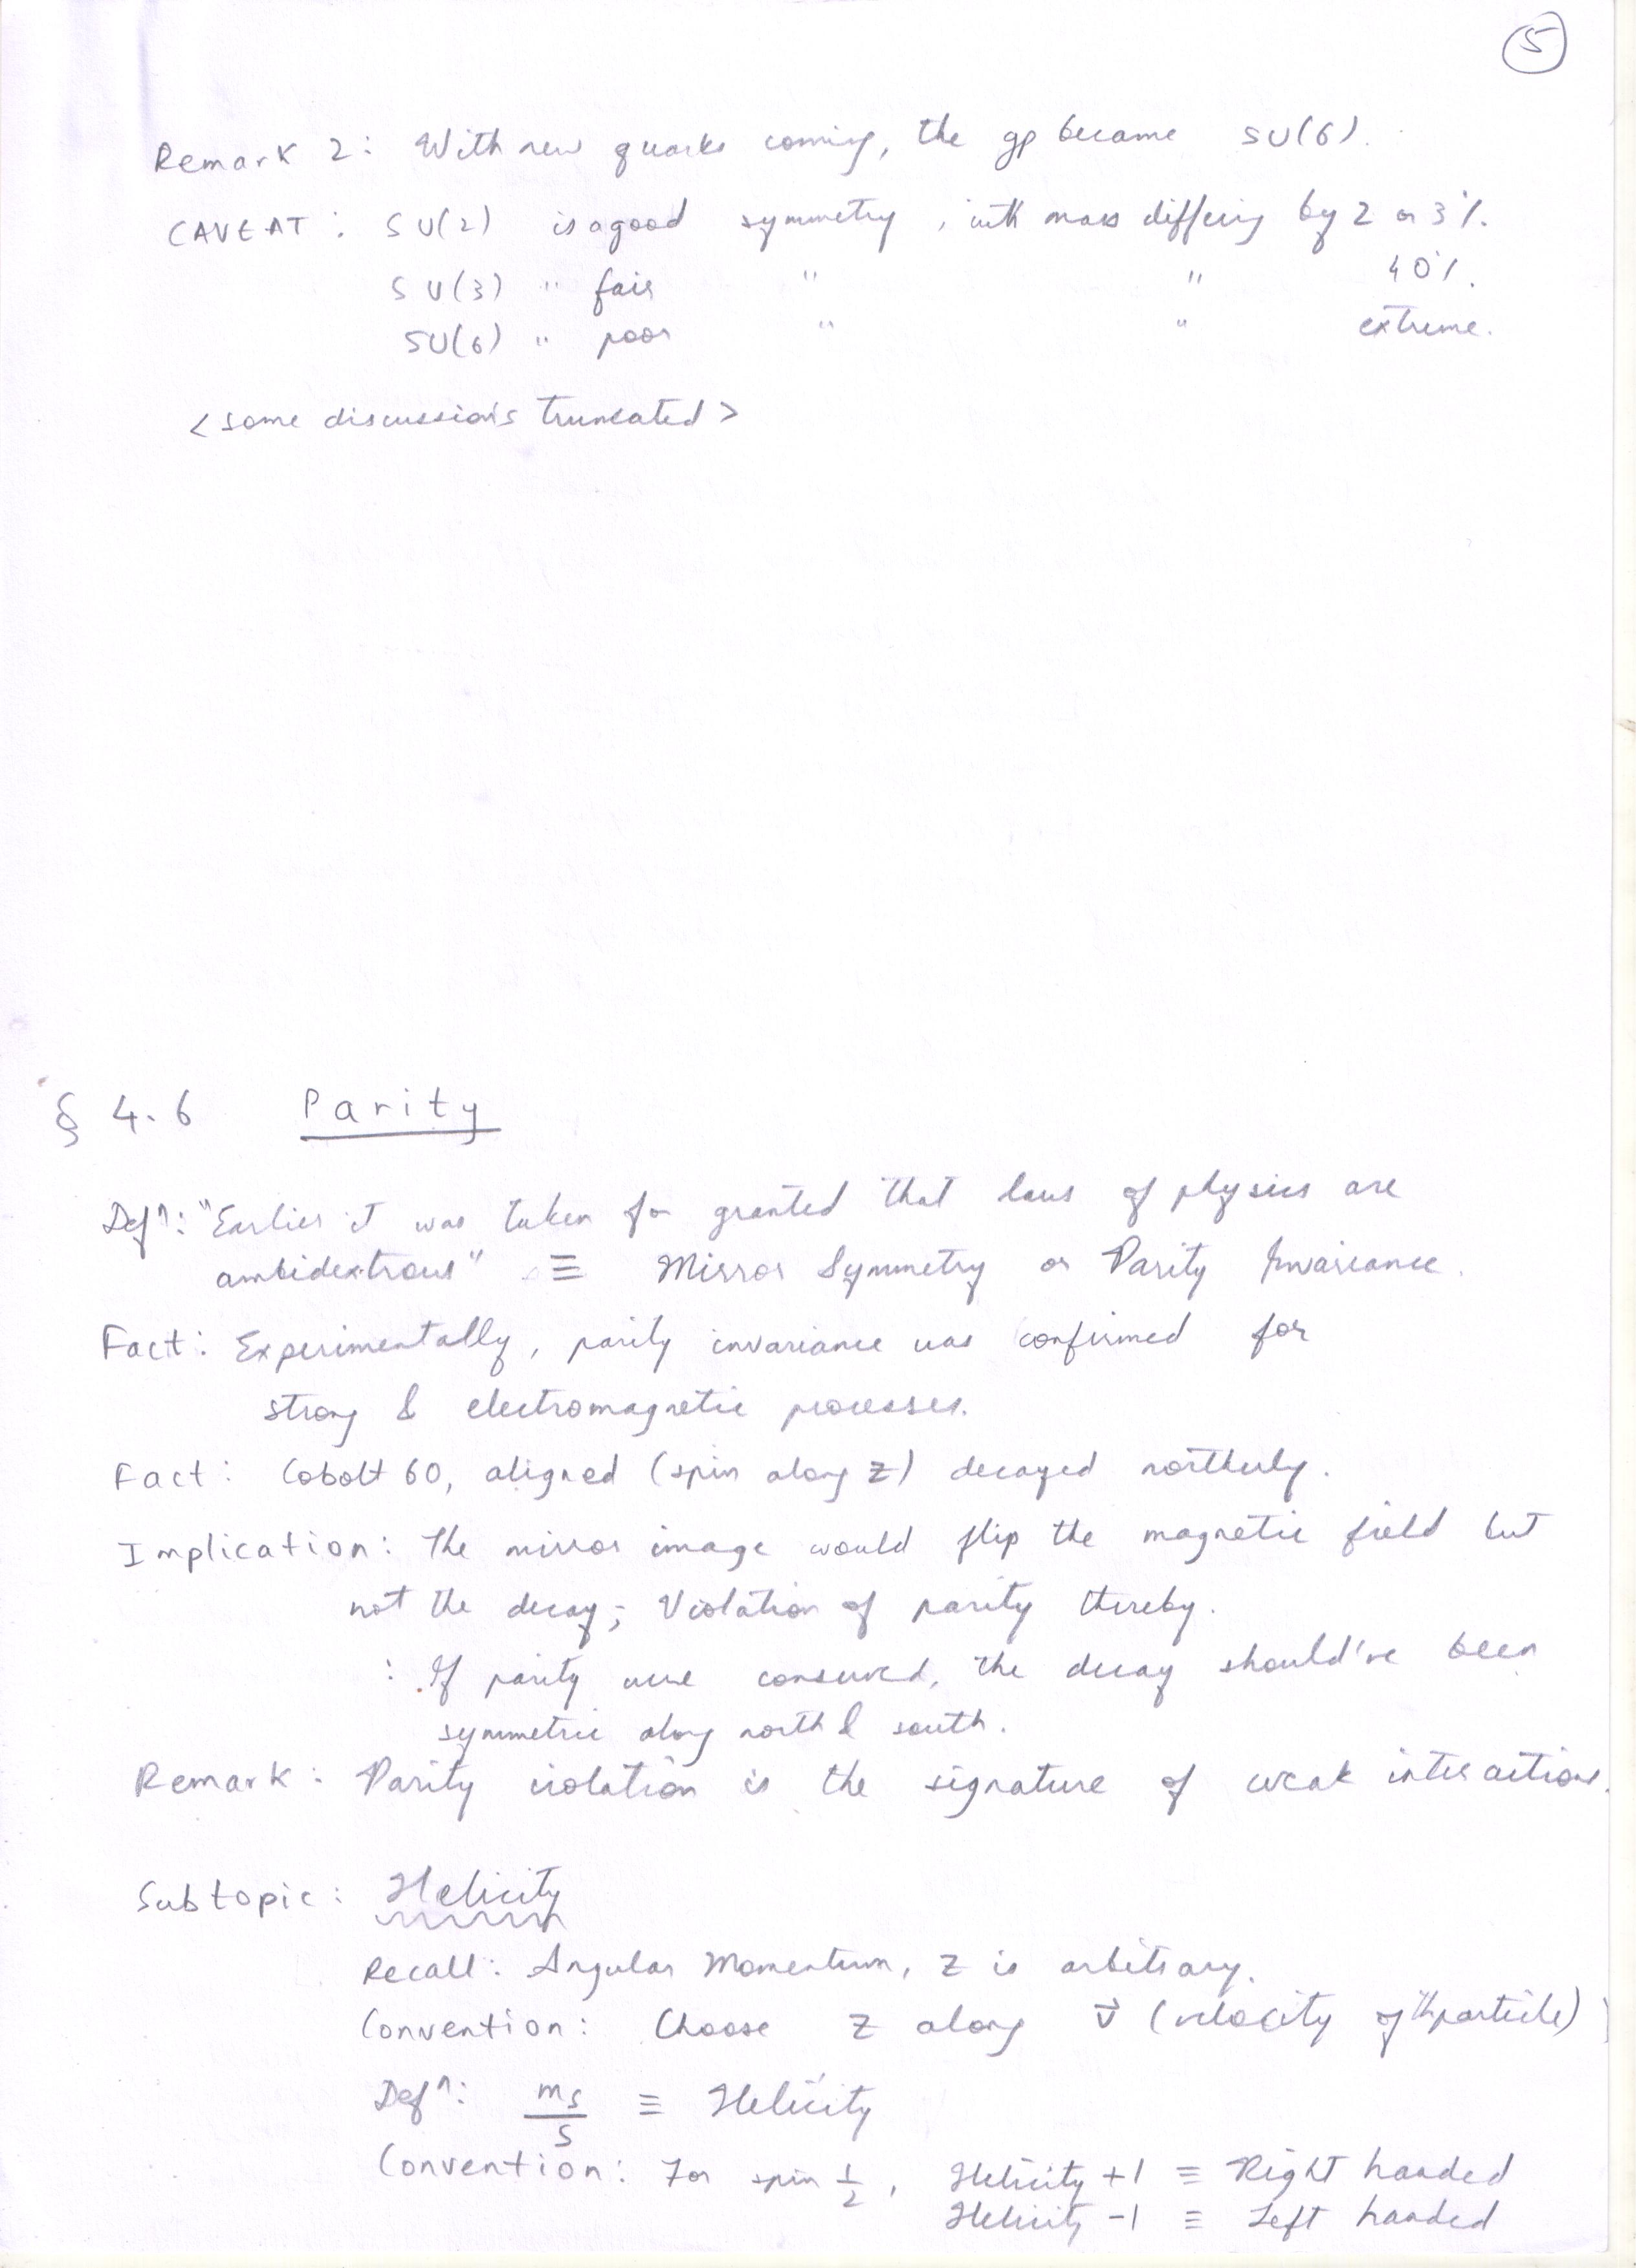 5
Remark 2: With new quarks coming, the gp became SU(6).
CAVEAT: SU(2) is a good symmetry, with mass differing by 2 or 3%.
SU(3) " fair " " 40%.
SU(6) " poor " " extreme.
<some discussions truncated>
§ 4.6 Parity
Defⁿ: "Earlier it was taken for granted that laws of physics are
ambidextrous" ≡ Mirror Symmetry or Parity Invariance.
Fact: Experimentally, parity invariance was confirmed for
strong & electromagnetic processes.
Fact: Cobolt 60, aligned (spin along z) decayed northerly.
Implication: The mirror image would flip the magnetic field but
not the decay; Violation of parity thereby.
: If parity were conserved, the decay should've been
symmetric along north & south.
Remark: Parity violation is the signature of weak interactions.
Subtopic: Helicity
Recall: Angular Momentum, z is arbitrary.
Convention: Choose z along v⃗ (velocity of the particle)
Defⁿ: mₛ/s ≡ Helicity
Convention: For spin 1/2, Helicity +1 ≡ Right handed
Helicity -1 ≡ Left handed